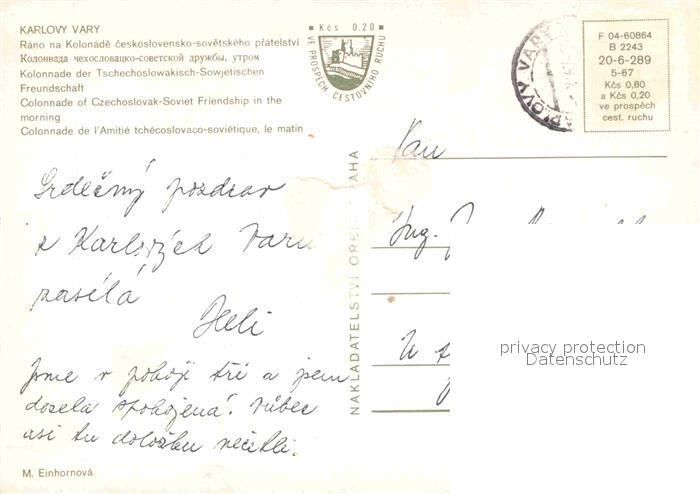 KARLOVY VARY
Ráno na Kolonádě československo-sovětského přátelství
Колоннада чехословацко-советской дружбы, утром
Kolonnade der Tschechoslowakisch-Sowjetischen
Freundschaft
Colonnade of Czechoslovak-Soviet Friendship in the
morning
Colonnade de l'Amitié tchécoslovaco-soviétique, le matin
Kčs 0.20
VE PROSPĚCH CESTOVNÍHO RUCHU
KARLOVY VARY
F 04-60864
B 2243
20-6-289
5-67
Kčs 0,80
a Kčs 0,20
ve prospěch
cest. ruchu
Pan
Ing.
Srdečný pozdrav
z Karlových Varů
zasílá
Heli
Jsme v pokoji tři a jsem
docela spokojená. Vůbec
asi tu doložku necítili.
NAKLADATELSTVÍ ORBIS, PRAHA
privacy protection
Datenschutz
M. Einhornová